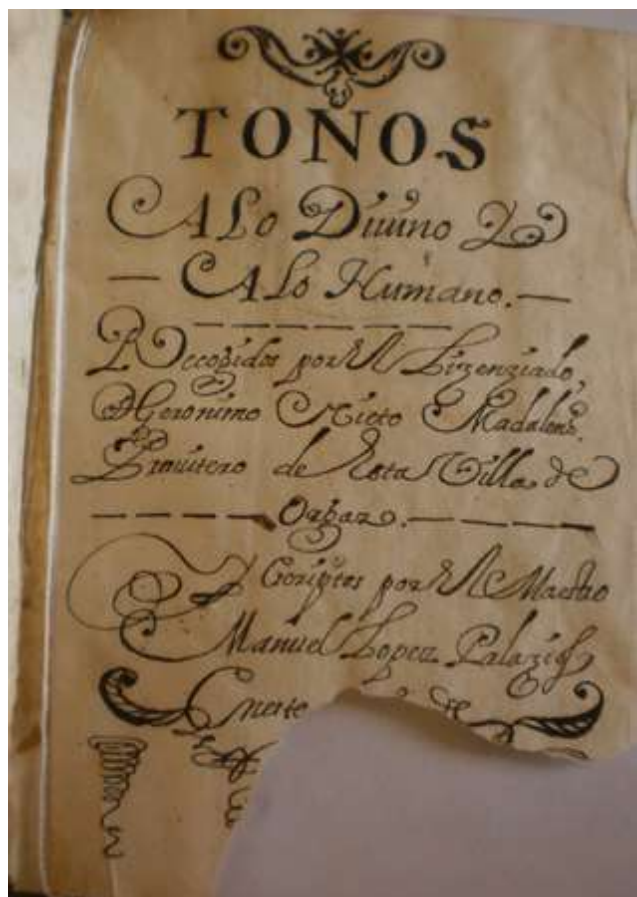 TONOS
A Lo Diuino Y
A Lo Humano.
Recogidos por El Lizenziado,
Geronimo Nieto Madaleno,
Prouitero de Esta Villa de
Orgaz.
Y Escriptos por El Maestro
Manuel Lopez Palazios
en este de